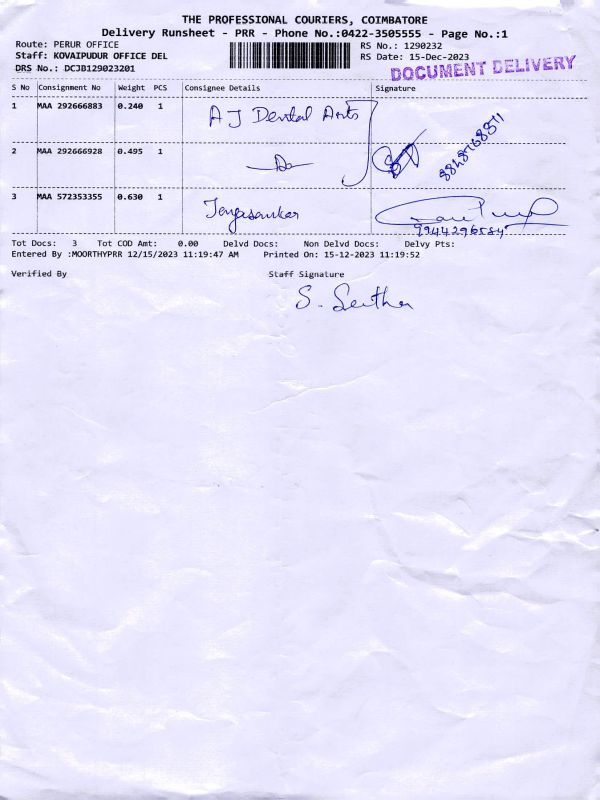 THE PROFESSIONAL COURIERS, COIMBATORE
Delivery Runsheet - PRR - Phone No.:0422-3505555 - Page No.:1
Route: PERUR OFFICE RS No.: 1290232
Staff: KOVAIPUDUR OFFICE DEL RS Date: 15-Dec-2023
DRS No.: DCJB129023201 DOCUMENT DELIVERY
S No Consignment No Weight PCS Consignee Details Signature
1 MAA 292666883 0.240 1 A J Dental Arts
2 MAA 292666928 0.495 1 8848768511
3 MAA 572353355 0.630 1
9944296584
Tot Docs: 3 Tot COD Amt: 0.00 Delvd Docs: Non Delvd Docs: Delvy Pts:
Entered By :MOORTHYPRR 12/15/2023 11:19:47 AM Printed On: 15-12-2023 11:19:52
Verified By Staff Signature